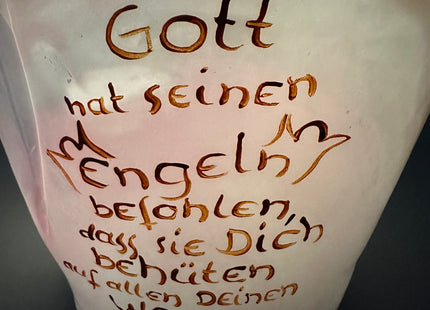 Gott
hat seinen
Engeln
befohlen,
dass sie Dich
behüten
auf allen Deinen